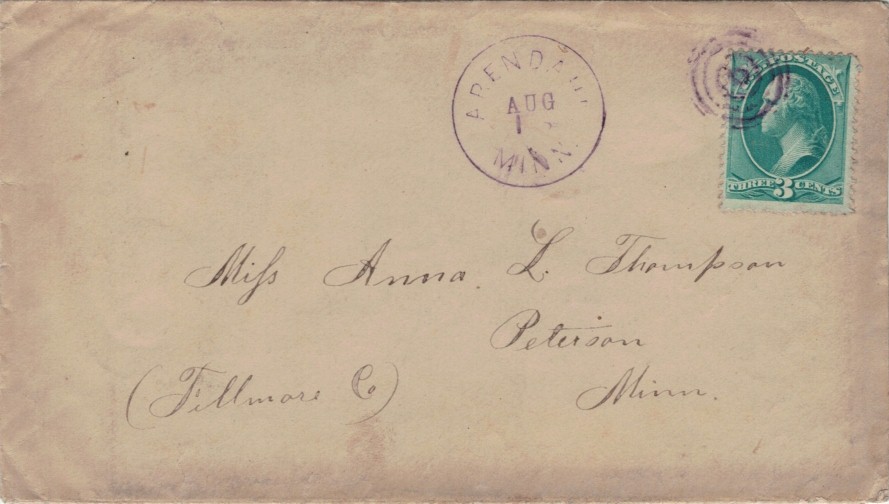 ARENDAHL
AUG
1
MINN.
POSTAGE
THREE 3 CENTS
Miss Anna. L. Thompson
Peterson
(Fillmore Co)
Minn.